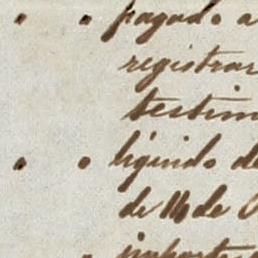 pagado a
registrar
testim
liquido de
de 16 de
importe